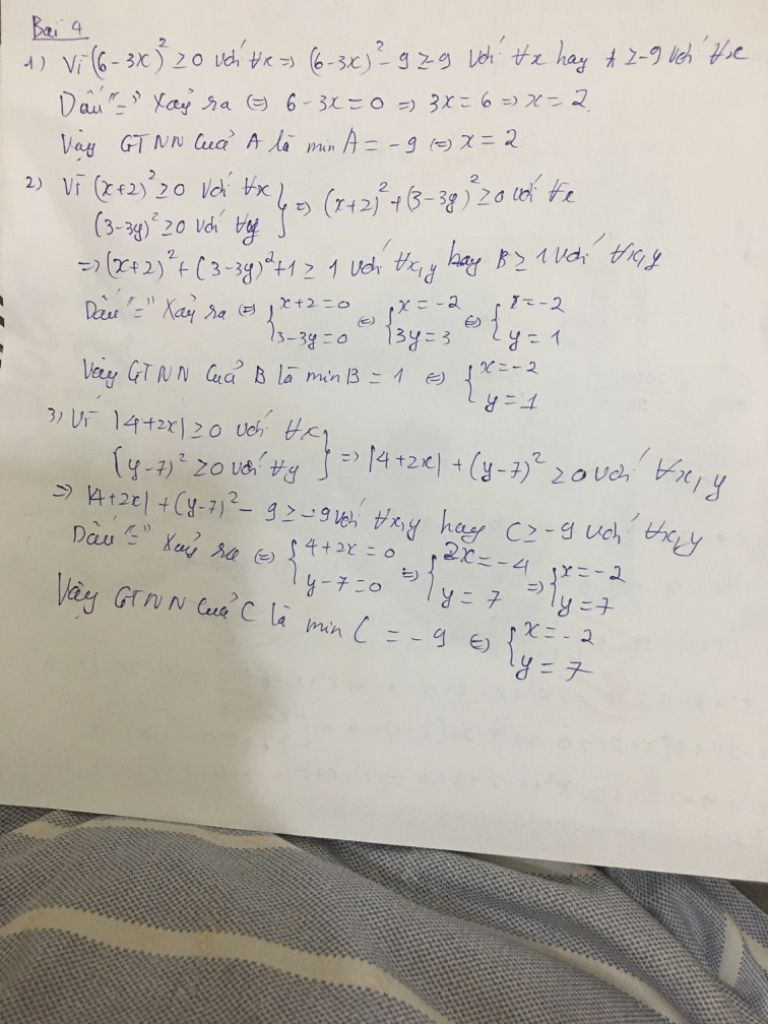 Bài 4
1) Vì (6-3x)² ≥ 0 với ∀x => (6-3x)² - 9 ≥ -9 với ∀x hay A ≥ -9 với ∀x
Dấu "=" xảy ra <=> 6-3x = 0 => 3x = 6 => x = 2
Vậy GTNN của A là min A = -9 <=> x = 2
2) Vì (x+2)² ≥ 0 với ∀x
(3-3y)² ≥ 0 với ∀y } => (x+2)² + (3-3y)² ≥ 0 với ∀x
=> (x+2)² + (3-3y)² + 1 ≥ 1 với ∀x,y hay B ≥ 1 với ∀x,y
Dấu "=" xảy ra <=> { x+2=0 <=> { x=-2 <=> { x=-2
3-3y=0 3y=3 y=1
Vậy GTNN của B là min B = 1 <=> { x=-2
y=1
3) Vì |4+2x| ≥ 0 với ∀x
(y-7)² ≥ 0 với ∀y } => |4+2x| + (y-7)² ≥ 0 với ∀x,y
=> |4+2x| + (y-7)² - 9 ≥ -9 với ∀x,y hay C ≥ -9 với ∀x,y
Dấu "=" xảy ra <=> { 4+2x=0 => { 2x=-4 => { x=-2
y-7=0 y=7 y=7
Vậy GTNN của C là min C = -9 <=> { x=-2
y=7